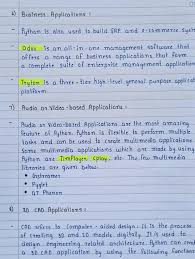 6) Business Applications :
- Python is also used to build ERP and e-commerce syste
- Odoo is an all-in-one management software that
offers a range of business applications that form
a complete suite of enterprise management applicatio
- Tryton is a three-tier high-level general purpose applicat
platform
7) Audio or Video-based Applications :
- Audio or Video-based Applications are the most amazing
feature of Python. Python is flexible to perform multiple
tasks and can be used to create multimedia applications
Some multimedia applications which are made by using
Python are TimPlayer, cplay, etc. The few multimedia
libraries are given below.
Gstreamer
Pyglet
QT Phonon
8) 3D CAD Applications :
- CAD refers to Computer-aided design. It is the process
of creating 3D and 2D models digitally. It is used to
design engineering related architecture. Python can create
a 3D CAD application by using the following functions